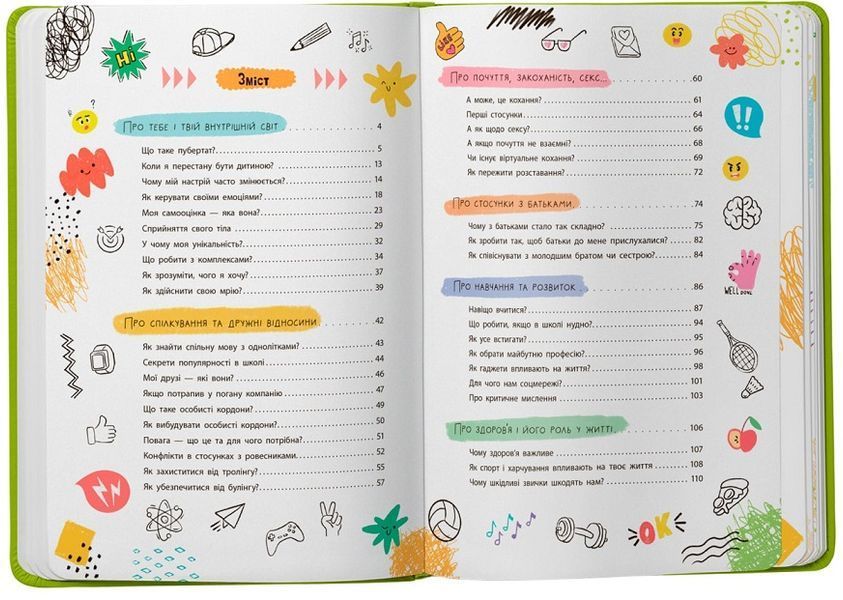 Hi
Зміст
Про тебе і твій внутрішній світ 4
Що таке пубертат? 5
Коли я перестану бути дитиною? 13
Чому мій настрій часто змінюється? 14
Як керувати своїми емоціями? 18
Моя самооцінка — яка вона? 23
Сприйняття свого тіла 29
У чому моя унікальність? 32
Що робити з комплексами? 34
Як зрозуміти, чого я хочу? 37
Як здійснити свою мрію? 39
Про спілкування та дружні відносини 42
Як знайти спільну мову з однолітками? 43
Секрети популярності в школі 44
Мої друзі — які вони? 46
Якщо потрапив у погану компанію 47
Що таке особисті кордони? 49
Як вибудувати особисті кордони? 50
Повага — що це та для чого потрібна? 51
Конфлікти в стосунках з ровесниками 52
Як захиститися від тролінгу? 55
Як убезпечитися від булінгу? 57
LIKE
Про почуття, закоханість, секс... 60
А може, це кохання? 61
Перші стосунки 64
А як щодо сексу? 66
А якщо почуття не взаємні? 68
Чи існує віртуальне кохання? 69
Як пережити розставання? 72
Про стосунки з батьками 74
Чому з батьками стало так складно? 75
Як зробити так, щоб батьки до мене прислухалися? 82
Як співіснувати з молодшим братом чи сестрою? 84
WELL DONE
Про навчання та розвиток 86
Навіщо вчитися? 87
Що робити, якщо в школі нудно? 94
Як усе встигати? 95
Як обрати майбутню професію? 96
Як гаджети впливають на життя? 98
Для чого нам соцмережі? 101
Про критичне мислення 103
Про здоров'я і його роль у житті 106
Чому здоров'я важливе 107
Як спорт і харчування впливають на твоє життя 108
Чому шкідливі звички шкодять нам? 110
OK